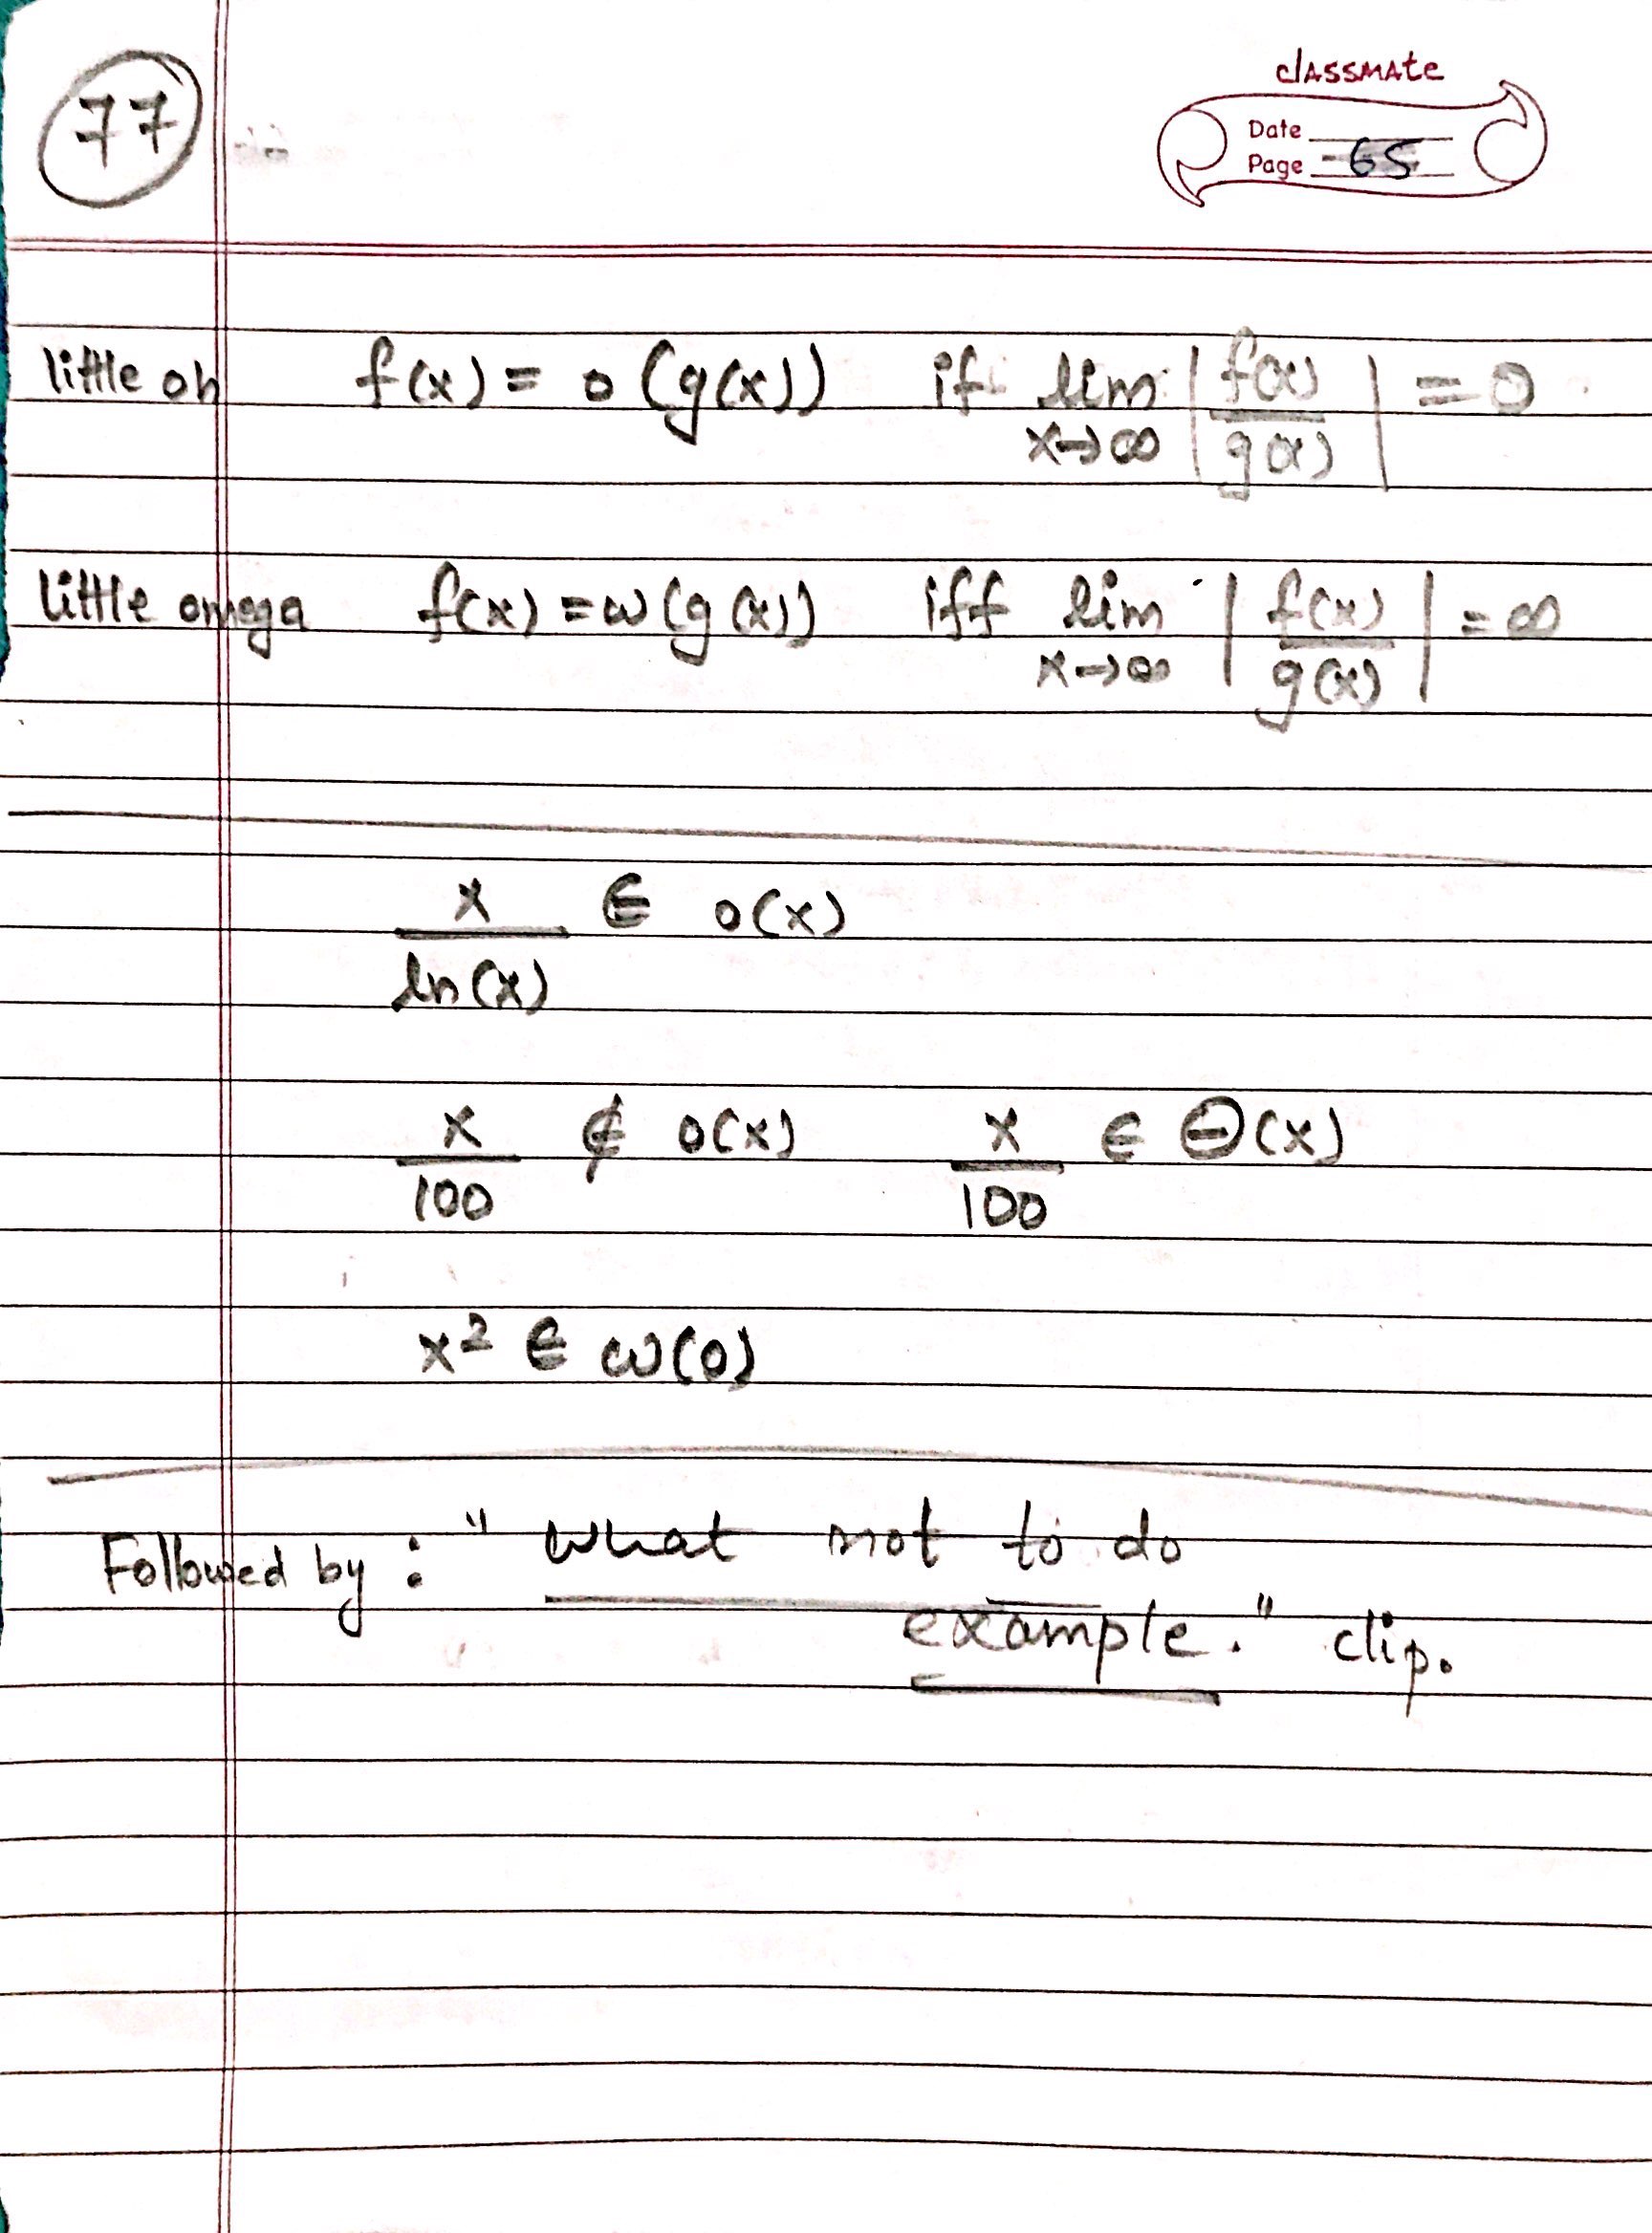 77
classmate
Date
Page 65
little oh f(x) = o(g(x)) if lim x→∞ |f(x)/g(x)| = 0
little omega f(x) = ω(g(x)) iff lim x→∞ |f(x)/g(x)| = ∞
x/ln(x) ∈ o(x)
x/100 ∉ o(x) x/100 ∈ Θ(x)
x² ∈ ω(0)
Followed by : "what not to do
example." clip.